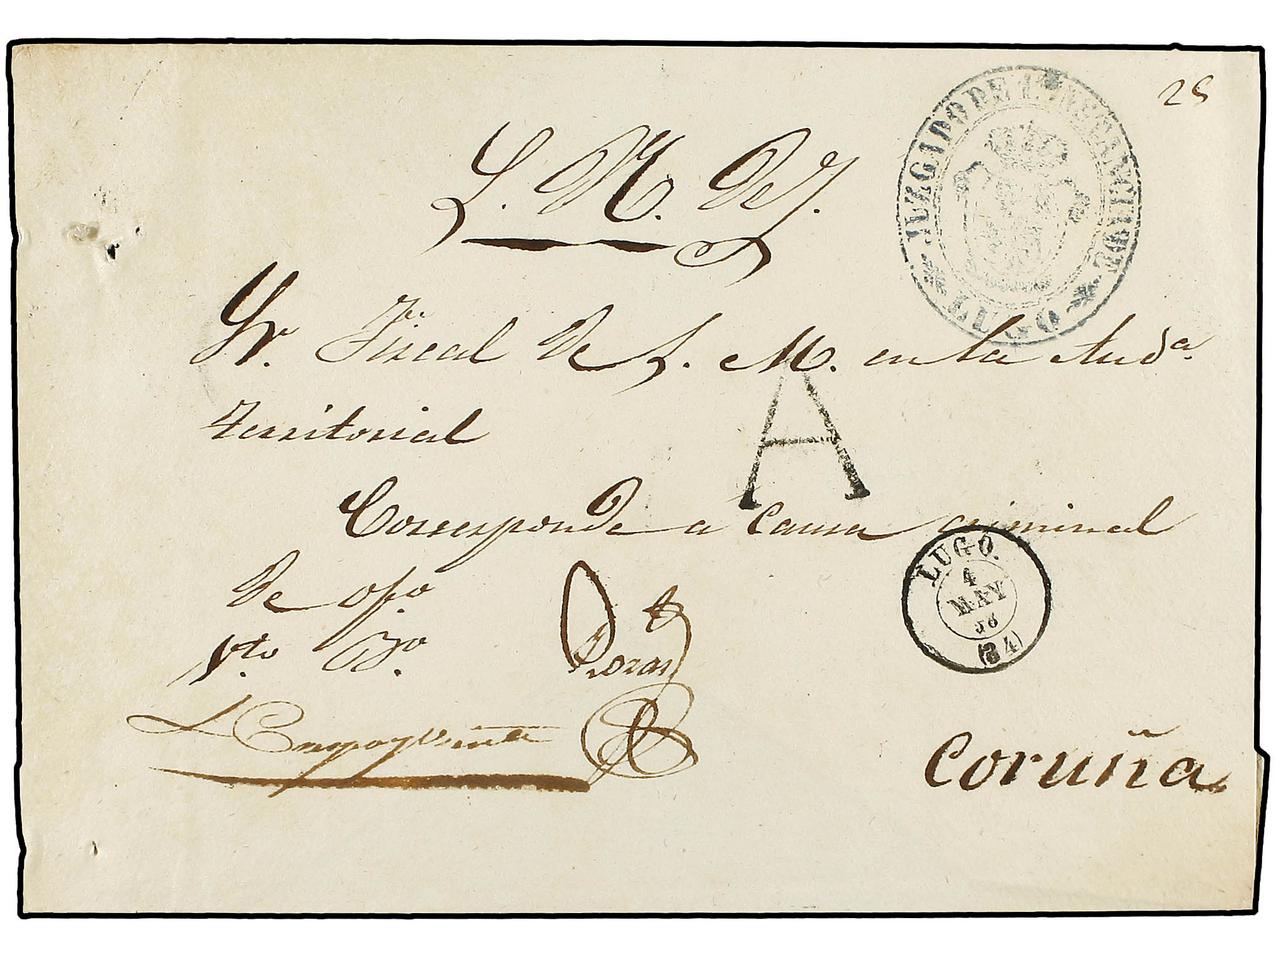 28
JUZGADO DE 1ª INSTANCIA DE
LUGO
S. N. De J.
Sr. Fiscal de S. M. en la Audª
territorial
A
Corresponde a causa criminal
de ofº
Vto Bº
LUGO.
4
MAY
56
(34)
Coruña